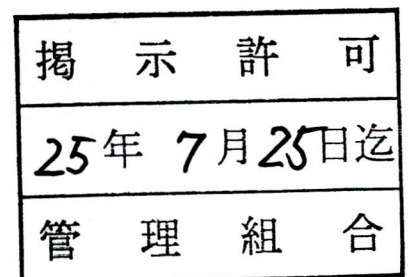 掲示許可
25年7月25日迄
管理組合